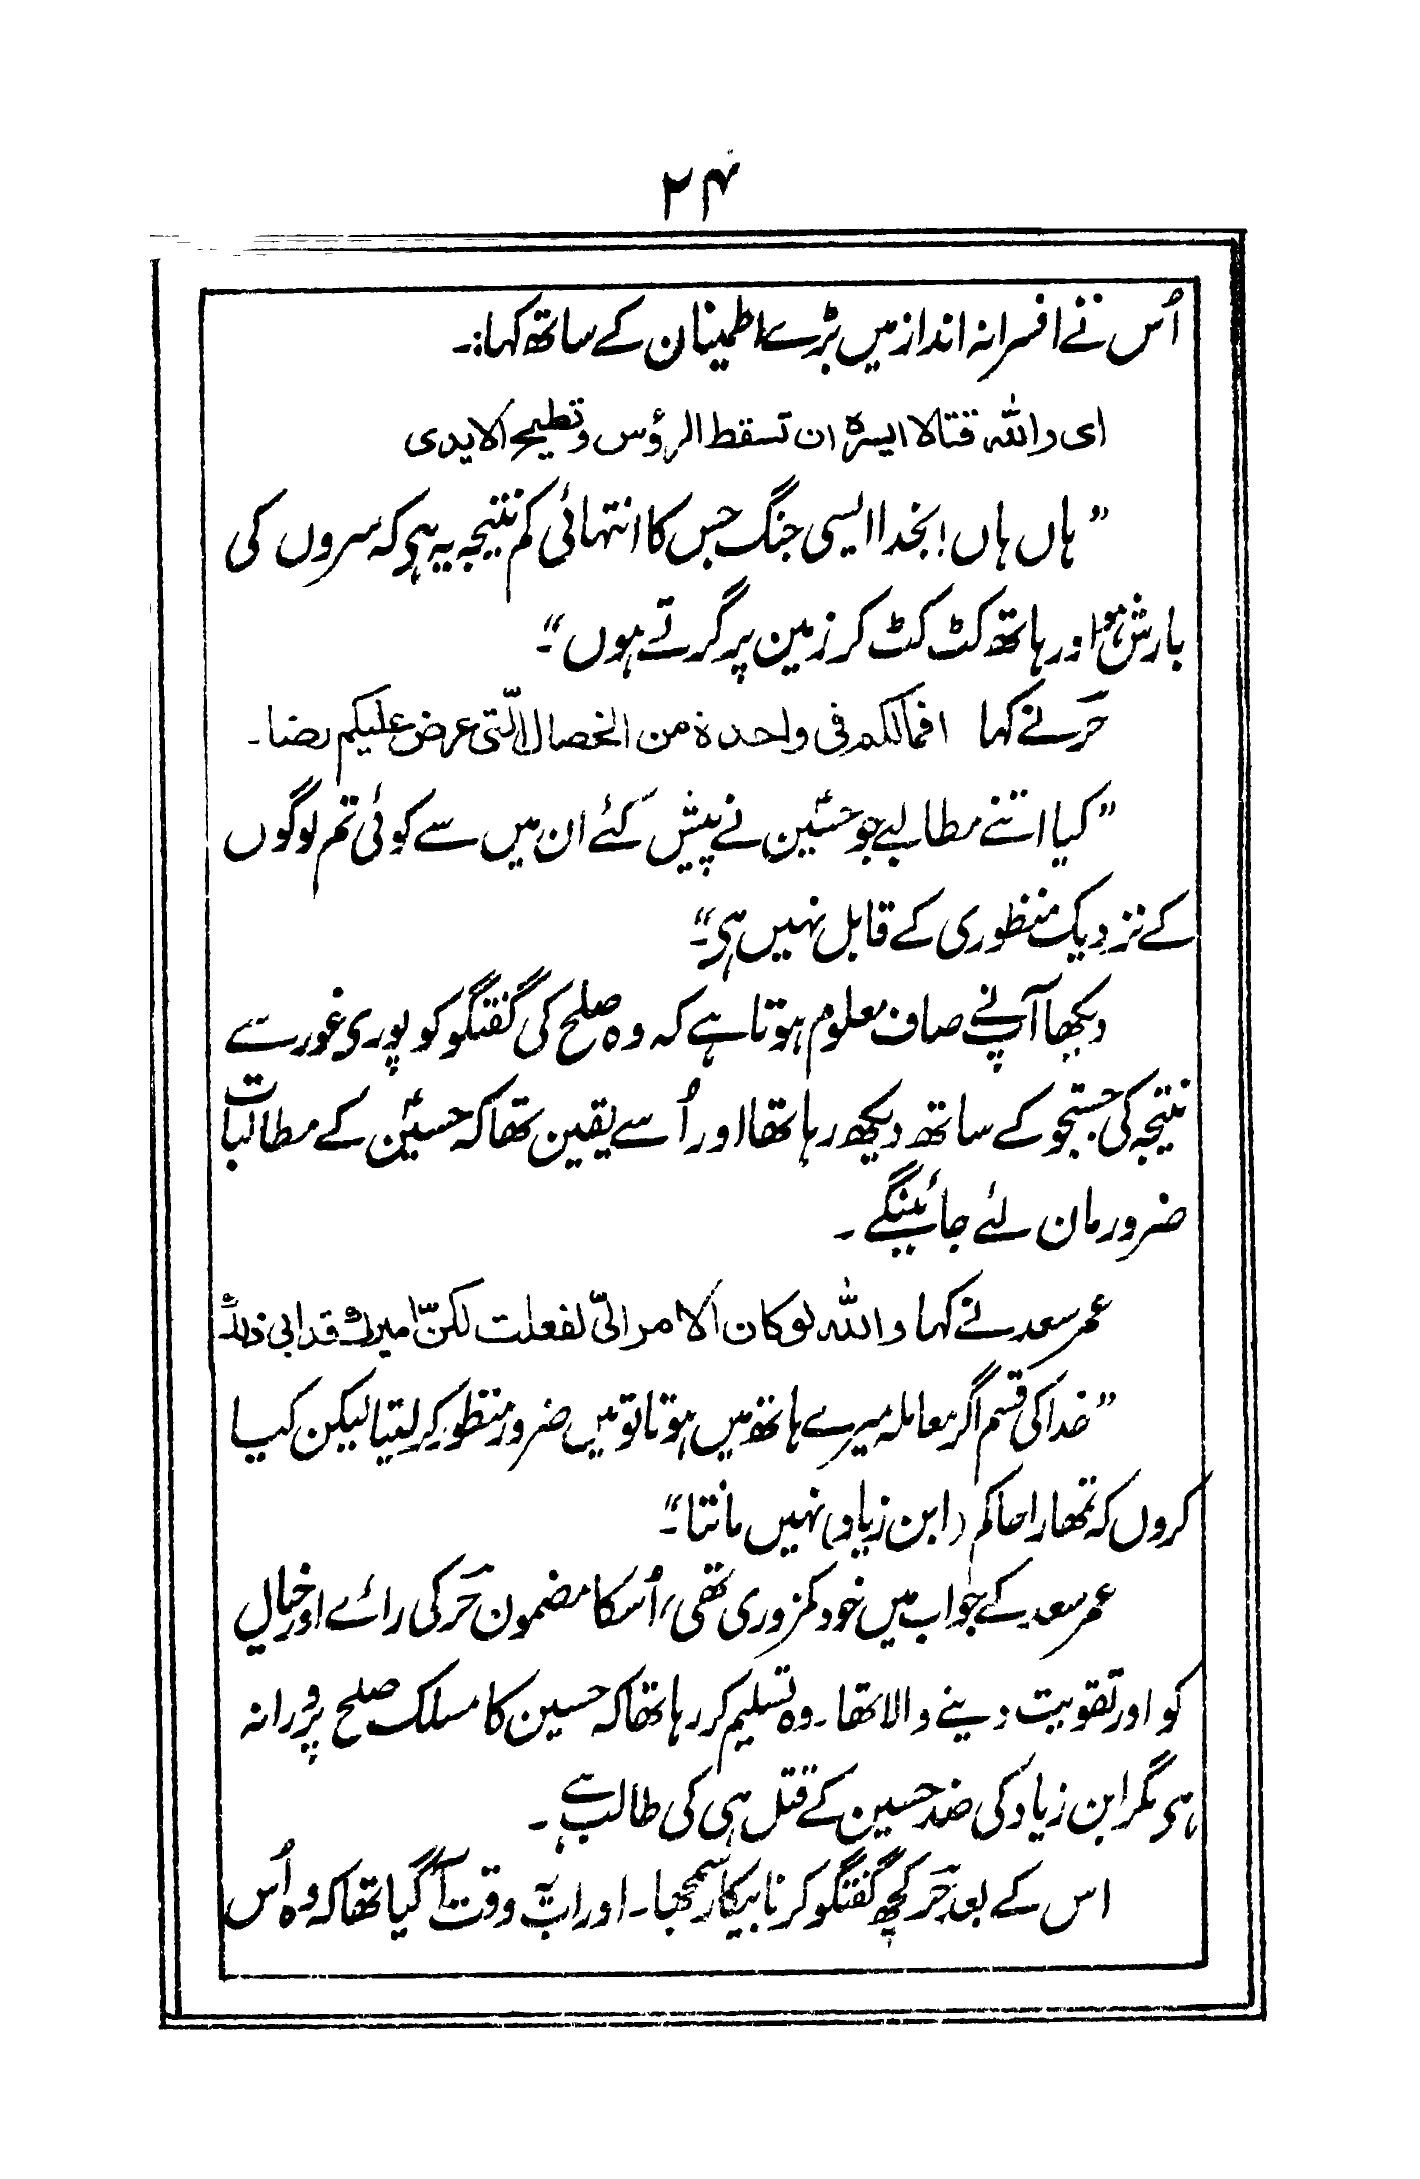 ۲۴
اُس نے افسرانہ انداز میں بڑے اطمینان کے ساتھ کہا:۔
ای واللّٰہ قتالا ایسرہ ان تسقط الرؤس وتطیح الایدی
”ہاں ہاں! بخدا ایسی جنگ جس کا انتہائی کم نتیجہ یہ ہی کہ سروں کی
بارش ہو اور ہاتھ کٹ کٹ کر زمین پر گرتے ہوں“۔
حُر نے کہا افمالکم فی واحدۃ من الخصال الّتی عرض علیکم رضا۔
”کیا اتنے مطالبے جو حسینؑ نے پیش کئے ان میں سے کوئی تم لوگوں
کے نزدیک منظوری کے قابل نہیں ہی“۔
دیکھا آپ نے صاف معلوم ہوتا ہے کہ وہ صلح کی گفتگو کو پوری غور سے
نتیجہ کی جستجو کے ساتھ دیکھ رہا تھا اور اُسے یقین تھا کہ حسینؑ کے مطالبات
ضرور مان لئے جائینگے۔
عمر سعد نے کہا واللّٰہ لوکان الامر الیّ لفعلت لکنّ امیرک قد ابی ذلک
”خدا کی قسم اگر معاملہ میرے ہاتھ میں ہوتا تو میں ضرور منظور کر لیتا لیکن کیا
کروں کہ تمھارا حاکم (ابن زیاد) نہیں مانتا“۔
عمر سعد کے جواب میں خود کمزوری تھی، اُسکا مضمون حُر کی رائے اور خیال
کو اور تقویت دینے والا تھا۔ وہ تسلیم کر رہا تھا کہ حسین کا مسلک صلح پرورانہ
ہی مگر ابن زیاد کی ضد حسین کے قتل ہی کی طالب ہے۔
اس کے بعد حُر کچھ گفتگو کرنا بیکار سمجھا۔ اور اب یہ وقت آگیا تھا کہ وہ اُس